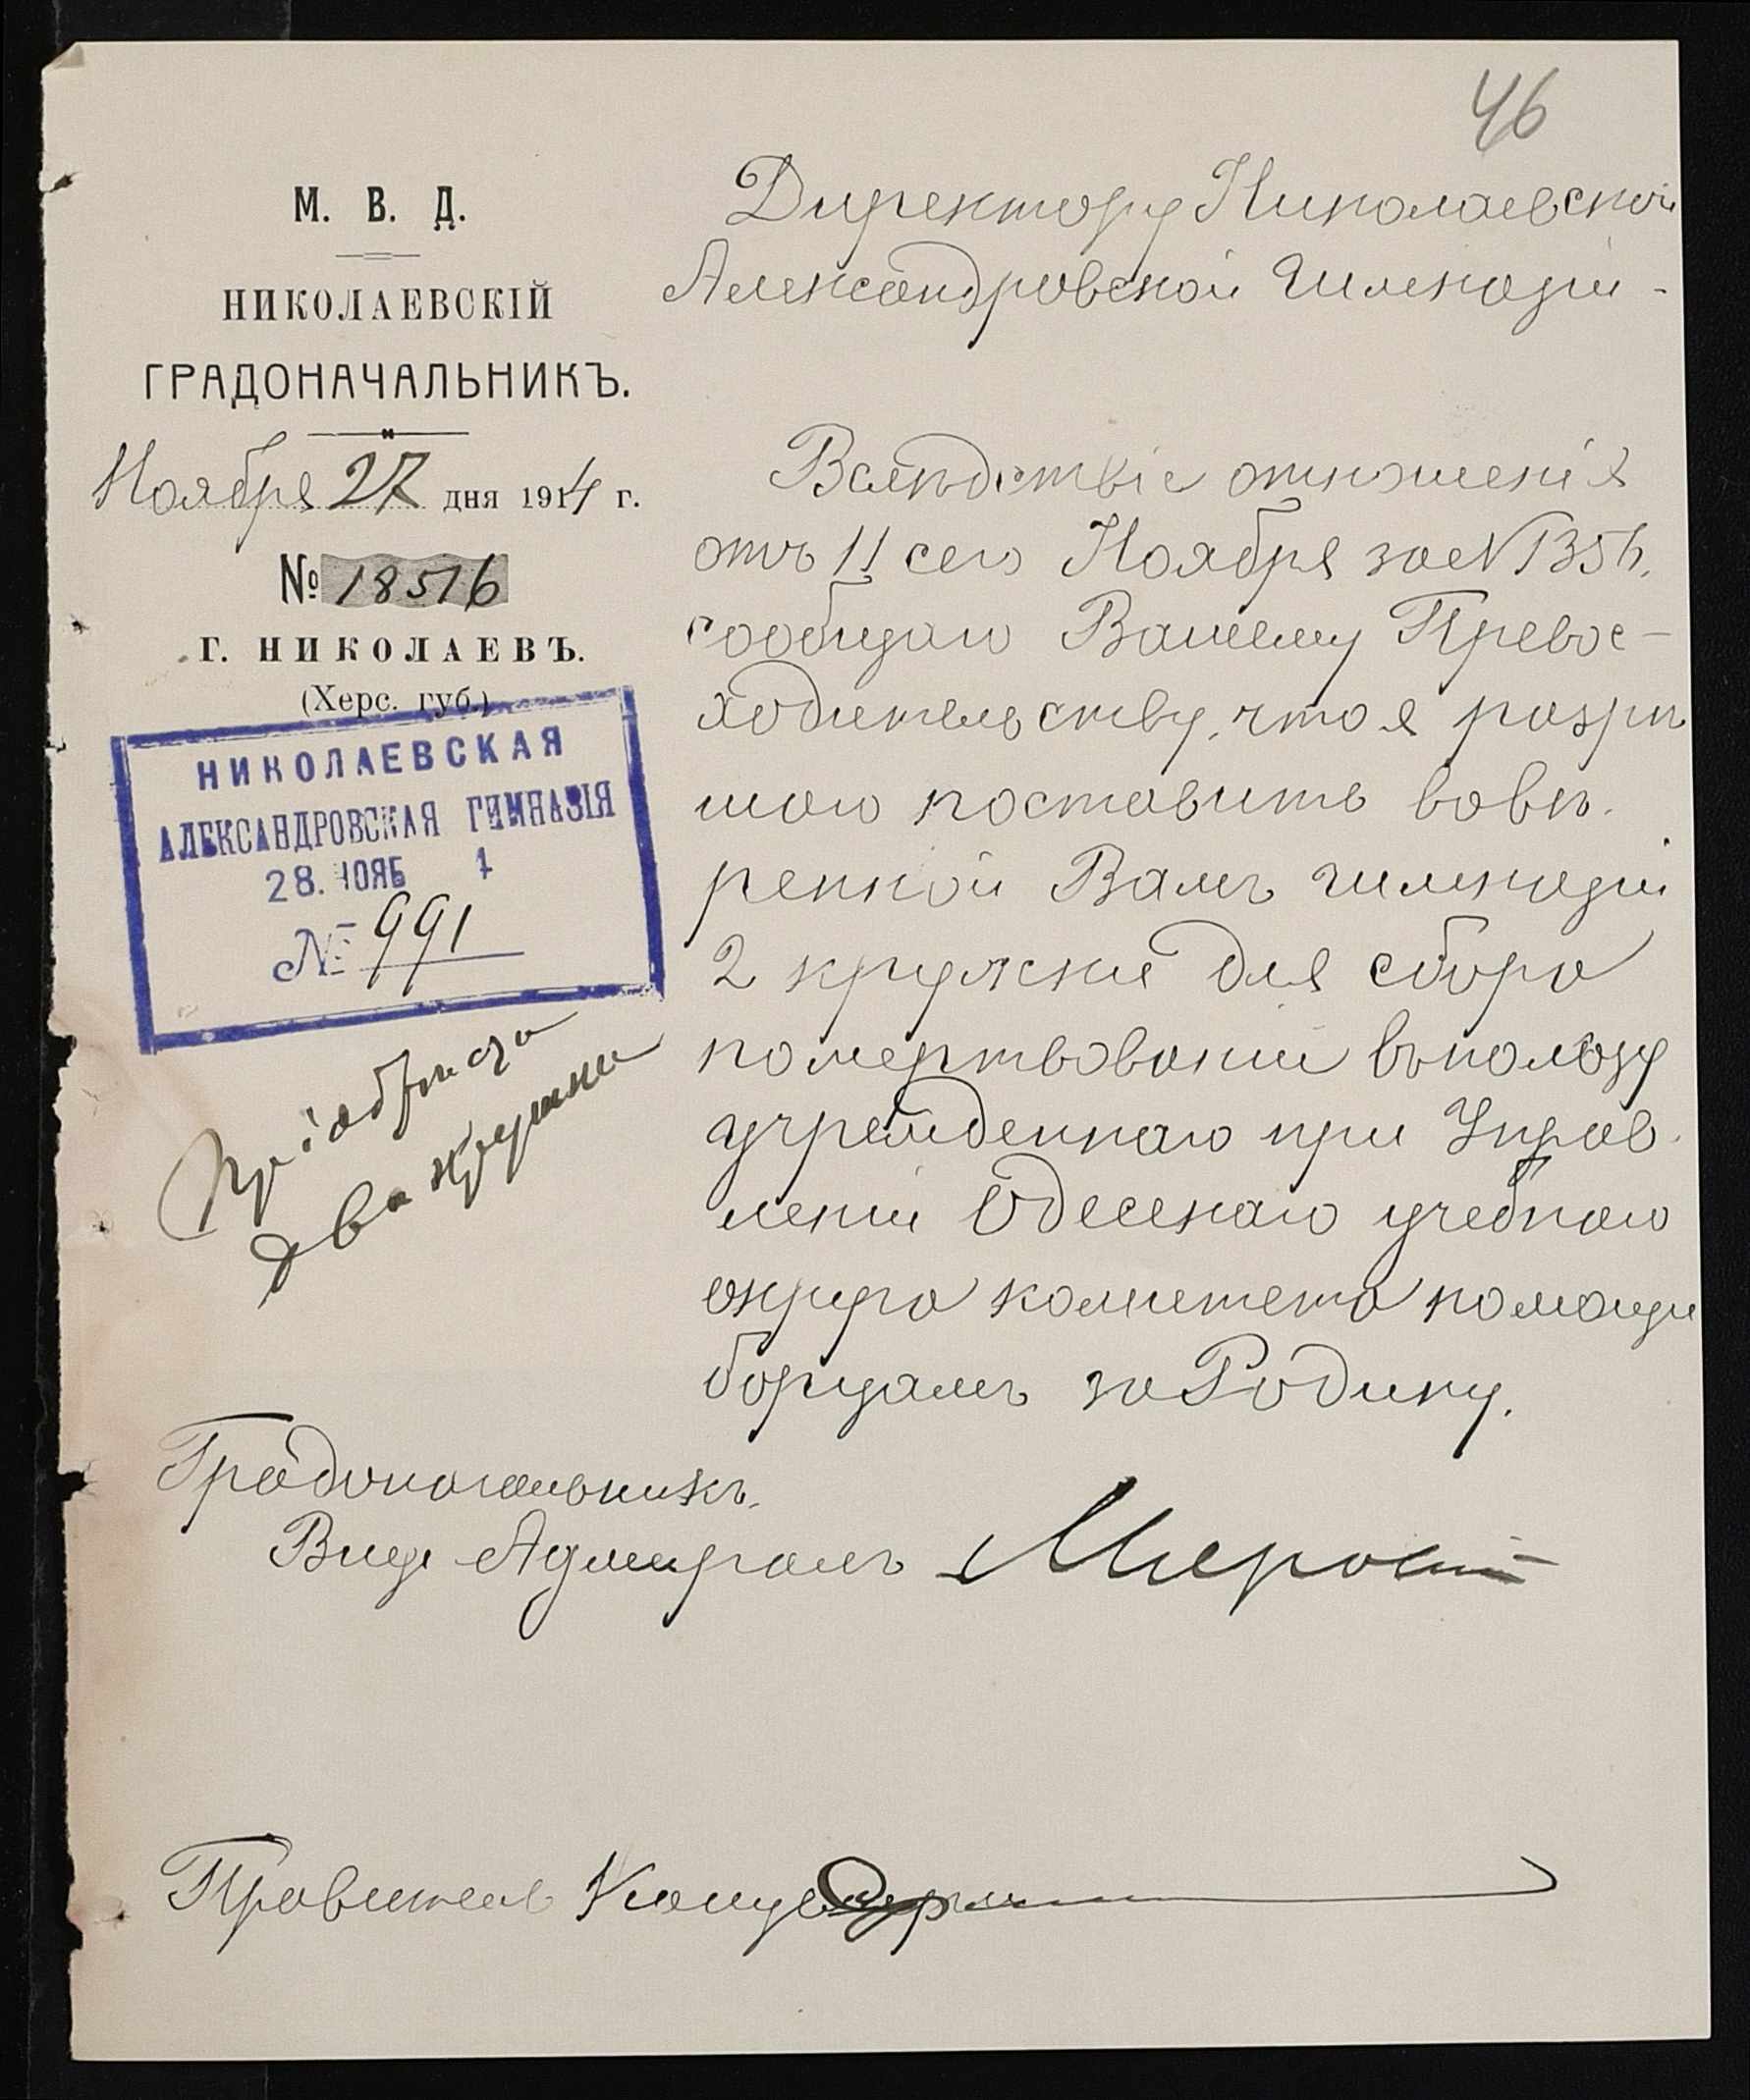 46
М. В. Д.
НИКОЛАЕВСКІЙ
ГРАДОНАЧАЛЬНИКЪ.
Ноября 27 дня 1914 г.
№ 18516
Г. НИКОЛАЕВЪ.
(Херс. губ.)
НИКОЛАЕВСКАЯ
АЛЕКСАНДРОВСКАЯ ГИМНАЗІЯ
28. НОЯБ 1
№ 991
два кружки
Директору Николаевской
Александровской Гимназіи
Вслѣдствіе отношенія
отъ 11 сего Ноября за №1356,
сообщаю Вашему Превос-
ходительству, что я разрѣ
шаю поставить ввѣ-
ренной Вамъ гимназіи
2 кружки для сбора
пожертвованій въ пользу
учрежденнаго при Управ-
леніи Одесскаго учебнаго
округа комитета помощи
борцамъ за Родину.
Градоначальникъ,
Вице Адмиралъ
Правитель Канцеляріи